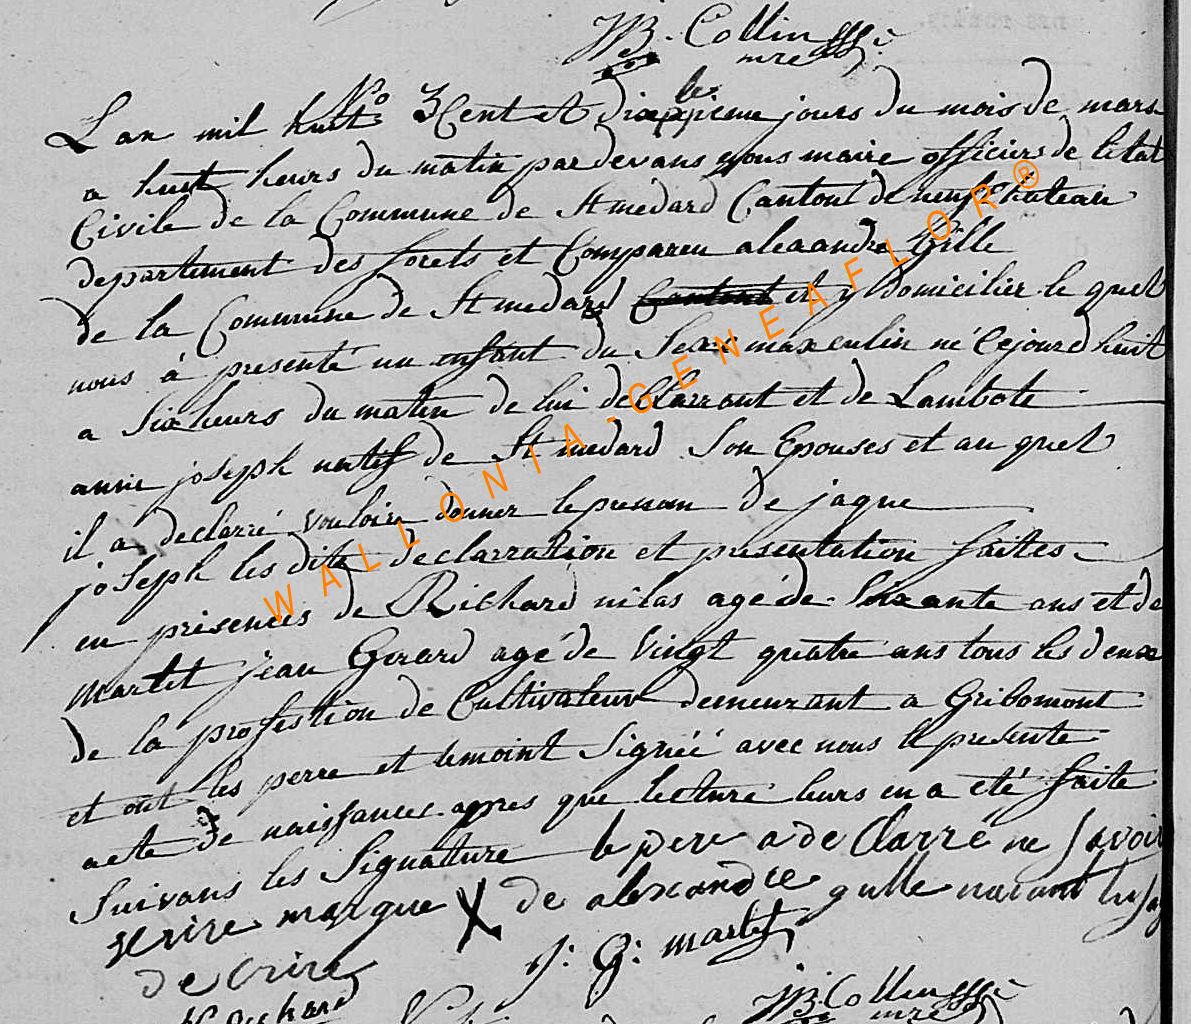 JB. Collin
mre
No 3
Lan mil huit Cent et dix le jours du mois de mars
a huit heurs du matin par devans nous maire officiers de letat
Civile de la Commune de St medard Cantont de neufchateau
departement des forets et Compareu alexandre Gille
de la Commune de St medard Cantont et y domicilier le quel
nous à presenté un enfant du Sexe maxculin né Cejourdhuit
a Six heurs du matin de lui declarrant et de Lambote
anne joseph natif de St medard Son Epouses et au quel
il a declarré vouloir donner le prenom de jaque
joseph les dite declarration et presentation faites
en presences de Richard nilas agé de Soixante ans et de
Martlet jean Gerard agé de Vingt quatre ans tous les deux
de la profestion de Cultivateur demeurant a Gribomont
et ont les perre et temoint Signéé avec nous le presente
acte de naissance apres que lecture leurs en a été faite
Suivans les Signature le pere a de Clarré ne Savoir
Ecrire marque X de alexandre gille naiant lusag
de Crire
J: G: martlet
Richard
JB. Collin
mre
WALLONIA-GENEAFLOR®